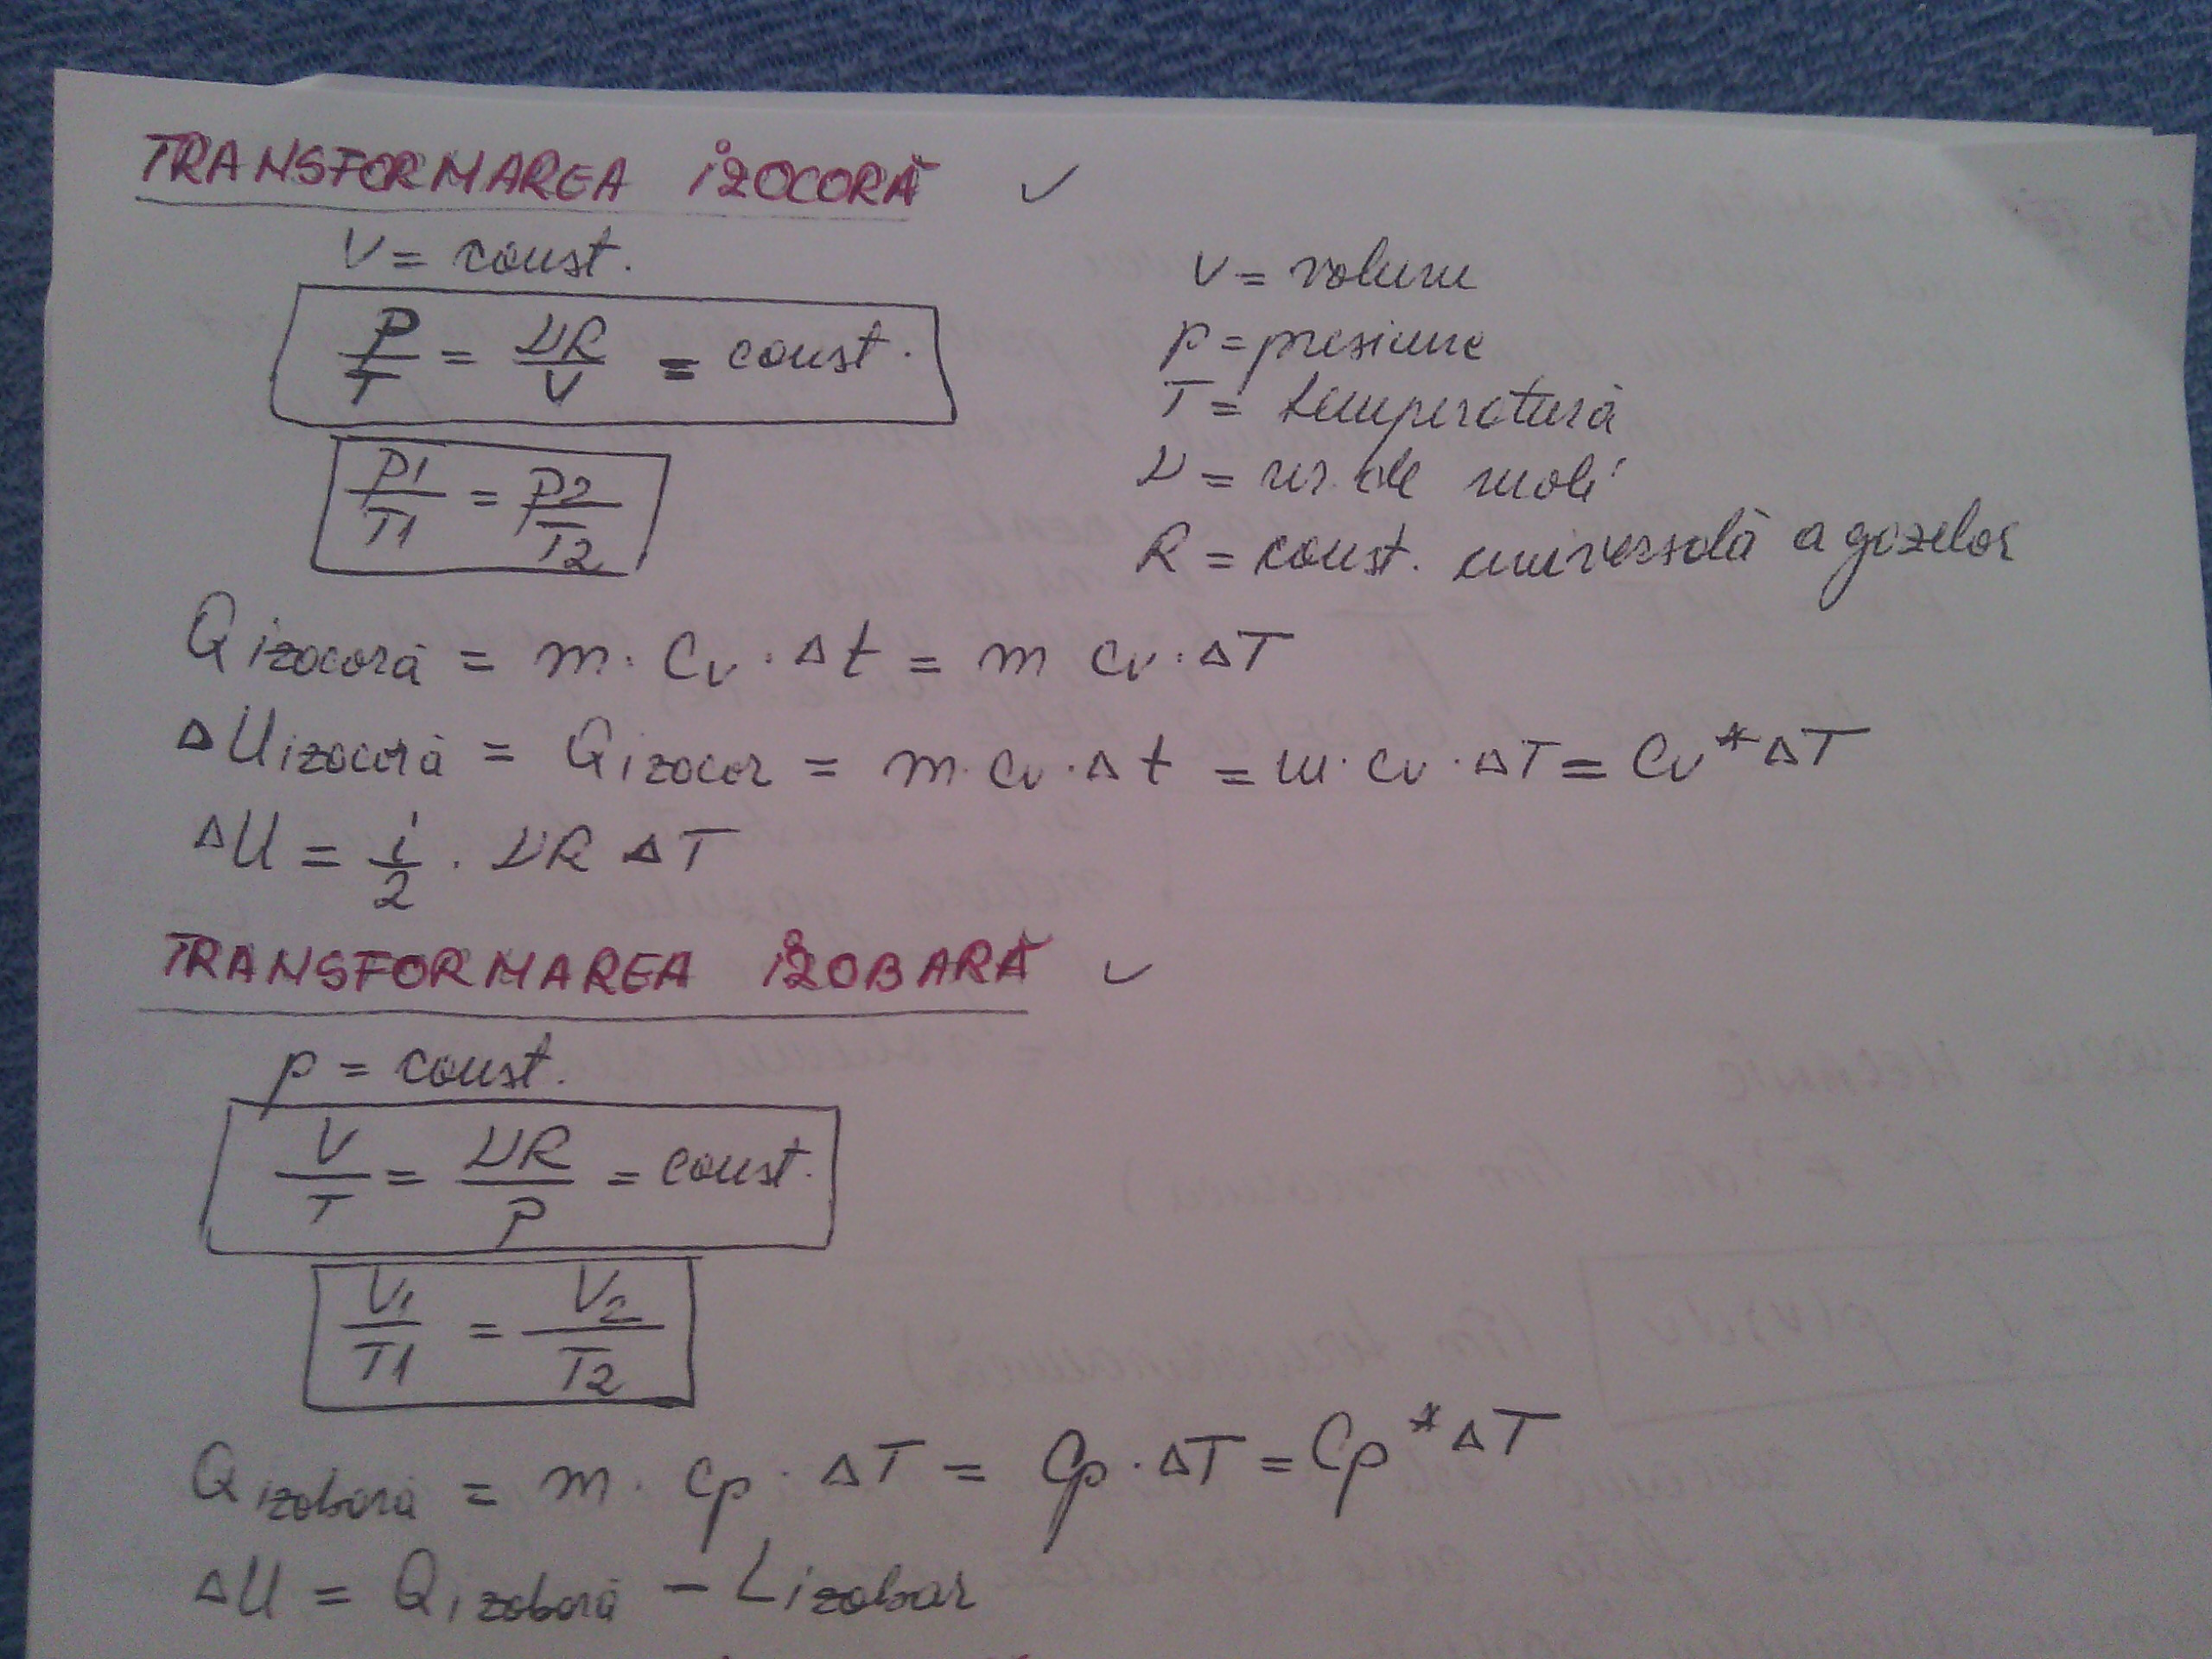 TRANSFORMAREA IZOCORĂ ✓
V = const.
P/T = νR/V = const.
P1/T1 = P2/T2
V = volum
p = presiune
T = temperatură
ν = nr. de moli
R = const. universală a gazelor
Q izocoră = m · cv · Δt = m cv · ΔT
ΔU izocoră = Q izocor = m · cv · Δt = m · cv · ΔT = Cv * ΔT
ΔU = i/2 · νR ΔT
TRANSFORMAREA IZOBARĂ ✓
p = const.
V/T = νR/P = const.
V1/T1 = V2/T2
Q izobară = m · cp · ΔT = Cp · ΔT = Cp * ΔT
ΔU = Q izobară − L izobar